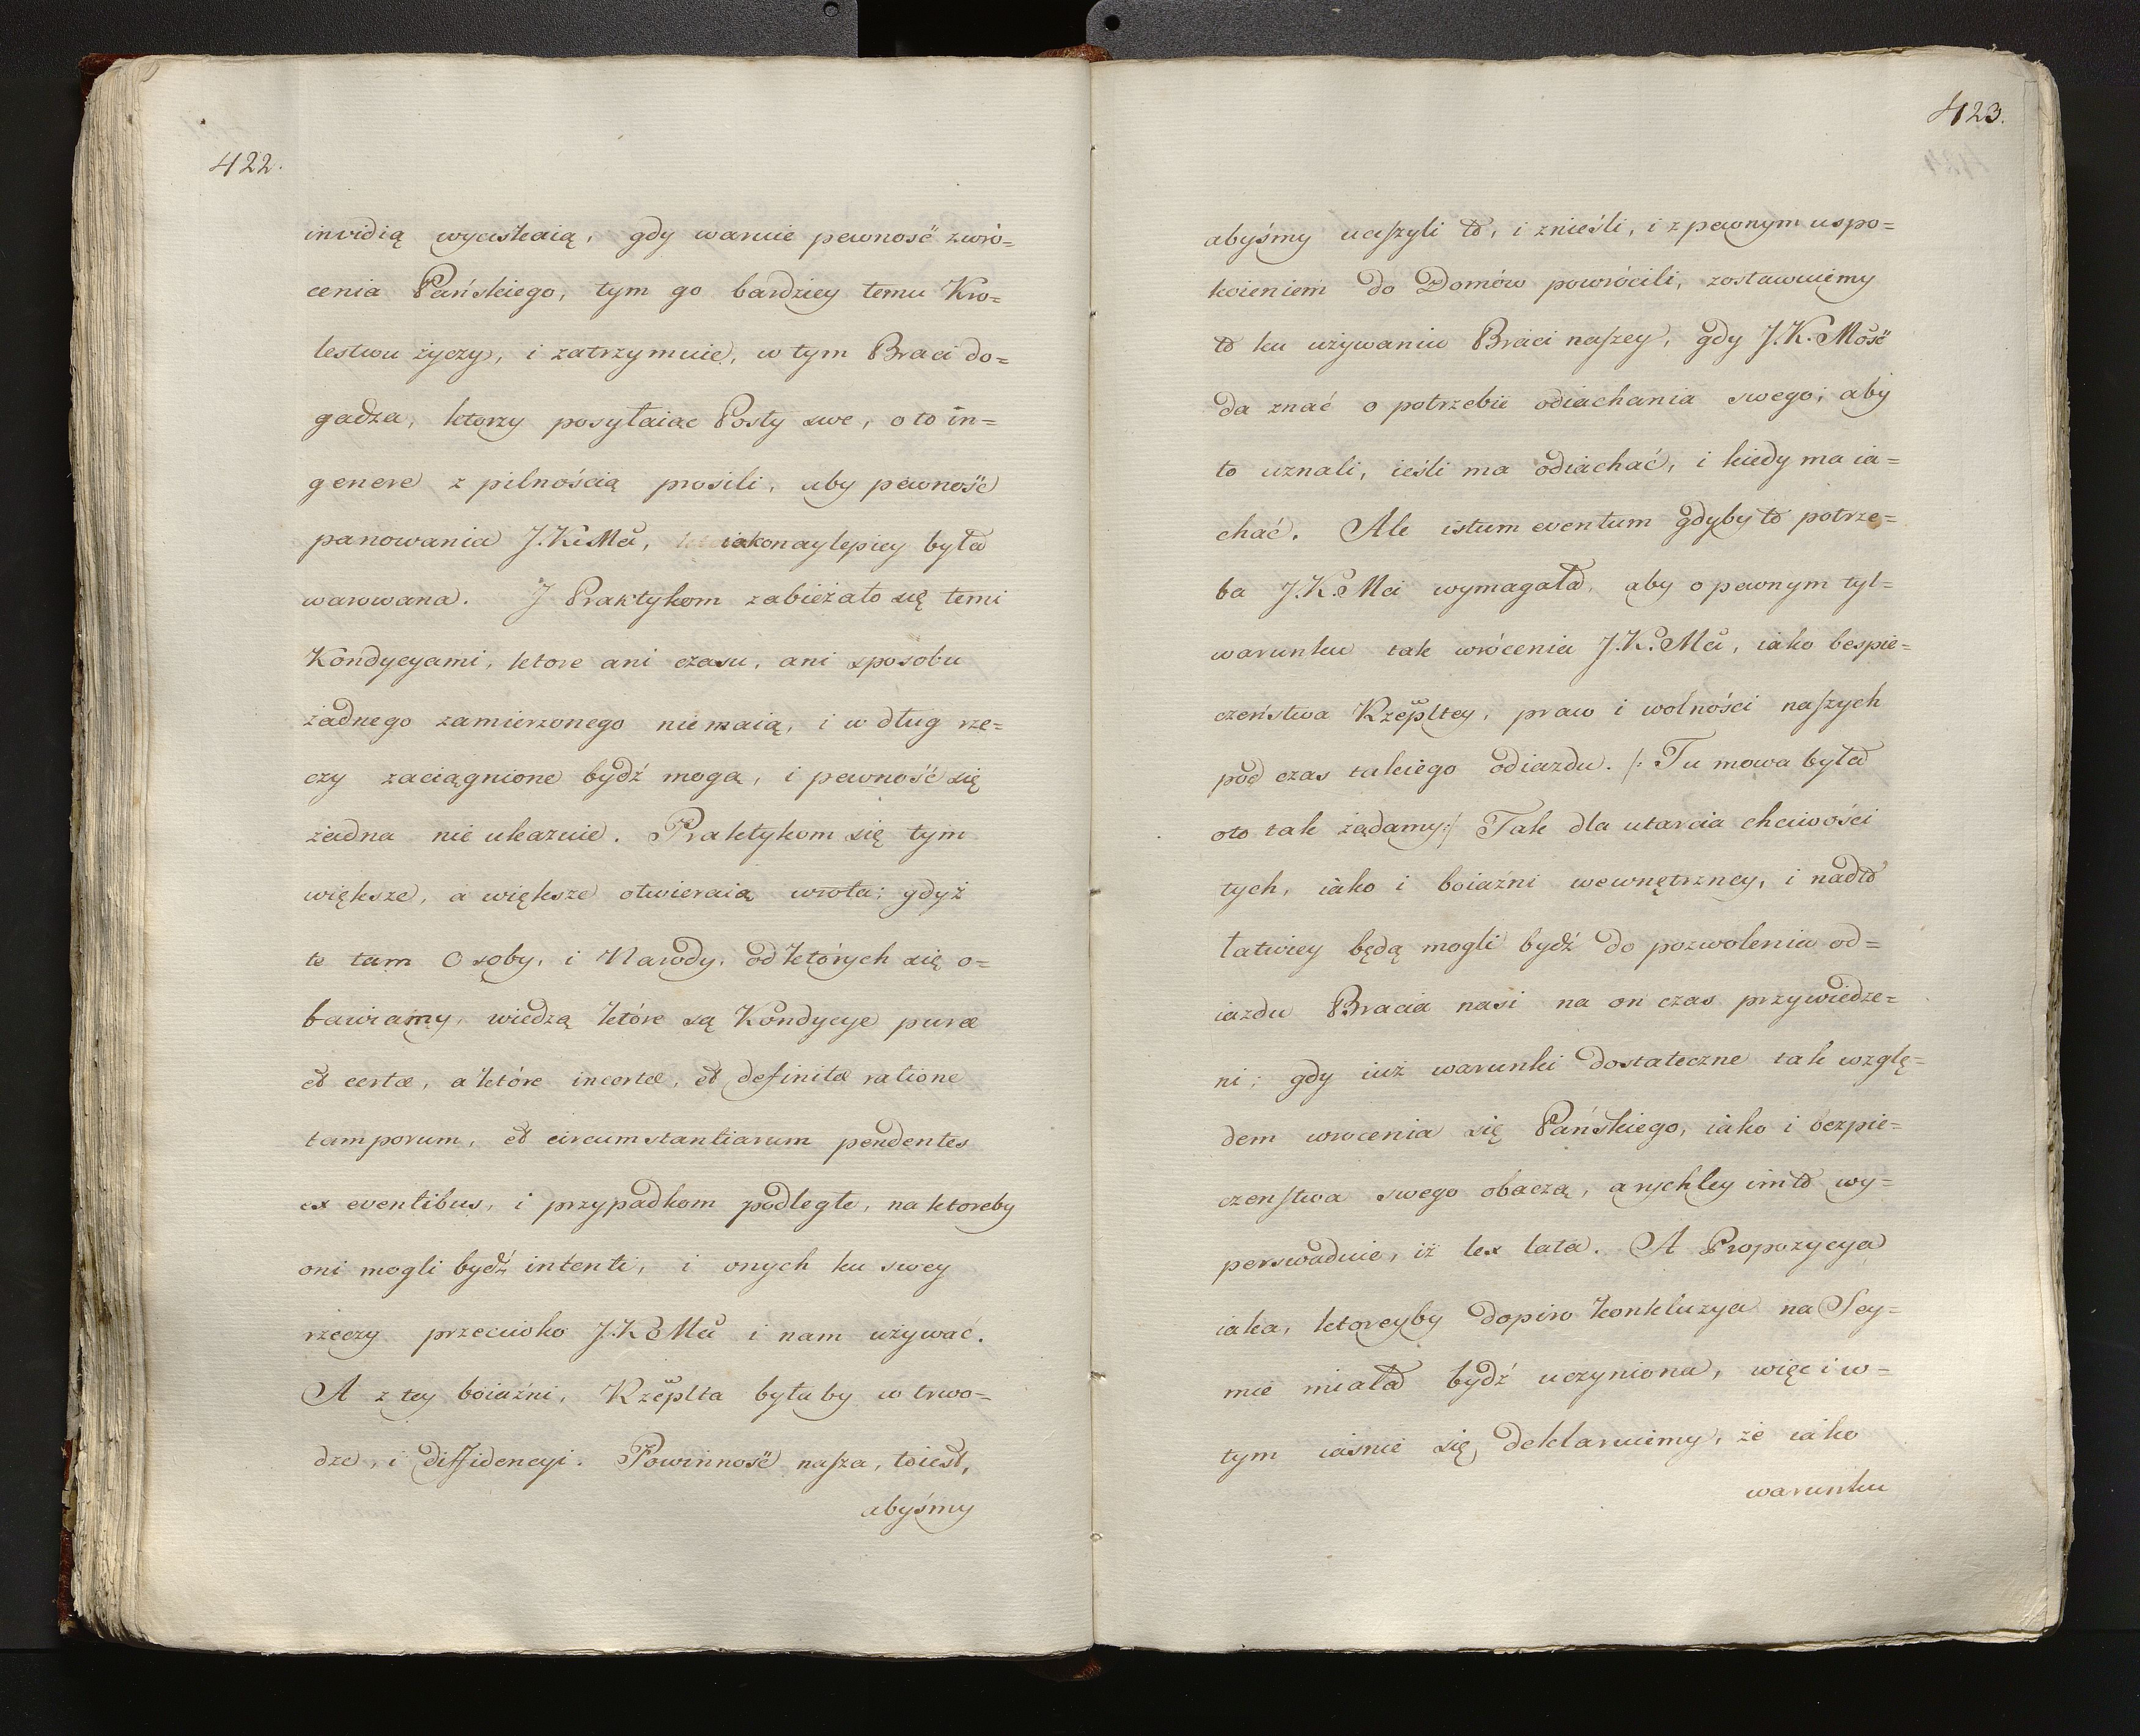 422.
invidią wyciskaią, gdy waruie pewność zwró=
cenia Pańskiego, tym go bardziey temu Kro=
lestwu życzy, i zatrzymuie, w tym Braci do=
gadza, ktorzy posyłaiac Posły swe, o to in=
genere z pilnością prosili, aby pewność
panowania J.K.Mci, iakonaylepiey była
warowana. J Praktykom zabieżało się temi
Kondycyami, ktore ani czasu, ani sposobu
żadnego zamierzonego nie maią, i w dług rze=
czy zaciągnione bydź moga, i pewność się
żadna nie ukazuie. Praktykom się tym
większe, a większe otwieraią wrota: gdyż
te tam Osoby, i Narody, od których się o=
bawiamy, wiedzą które są Kondycye puræ
et certæ, a które incertæ, et definitæ ratione
temporum, et circumstantiarum pendentes
ex eventibus, i przypadkom podległe, na ktoreby
oni mogli bydź intenti, i onych ku swey
rzeczy przeciwko J.K Mci i nam używać.
A z tey boiaźni, Rzeplta byłaby w trwo=
dze, i diffidencyi. Powinność nasza, to iest,
abyśmy
423.
abyśmy uciszyli to, i znieśli, i z pewnym uspo=
koieniem do Domów powrócili, zostawuiemy
to ku używaniu Braci naszey, gdy J.K.Mość
da znać o potrzebie odiachania swego; aby
to uznali, ieśli ma odiachać, i kiedy ma ia=
chać. Ale istum eventum gdyby to potrze=
ba J.K.Mci wymagała, aby o pewnym tyl=
warunku tak wrócenia J.K.Mci, iako bespie=
czeństwa Rzepltey, praw i wolności naszych
pod czas takiego odiazdu. /: Tu mowa była
oto tak żądamy:/ Tak dla utarcia chciwości
tych, iako i boiaźni wewnętrzney, i nadto
łatwiey będą mogli bydź do pozwolenia od=
iazdu Bracia nasi na on czas przywiedze=
ni; gdy iuż warunki dostateczne tak wzglę=
dem wrocenia się Pańskiego, iako i bezpie=
czenstwa swego obaczą, a rychley im to wy=
perswaduie, iż lex lata. A Propozycya
iaka, ktoreyby dopiro konkluzya na Sey=
mie miała bydź uczyniona, więc i w=
tym iaśnie się deklaruiemy, że iako
warunku